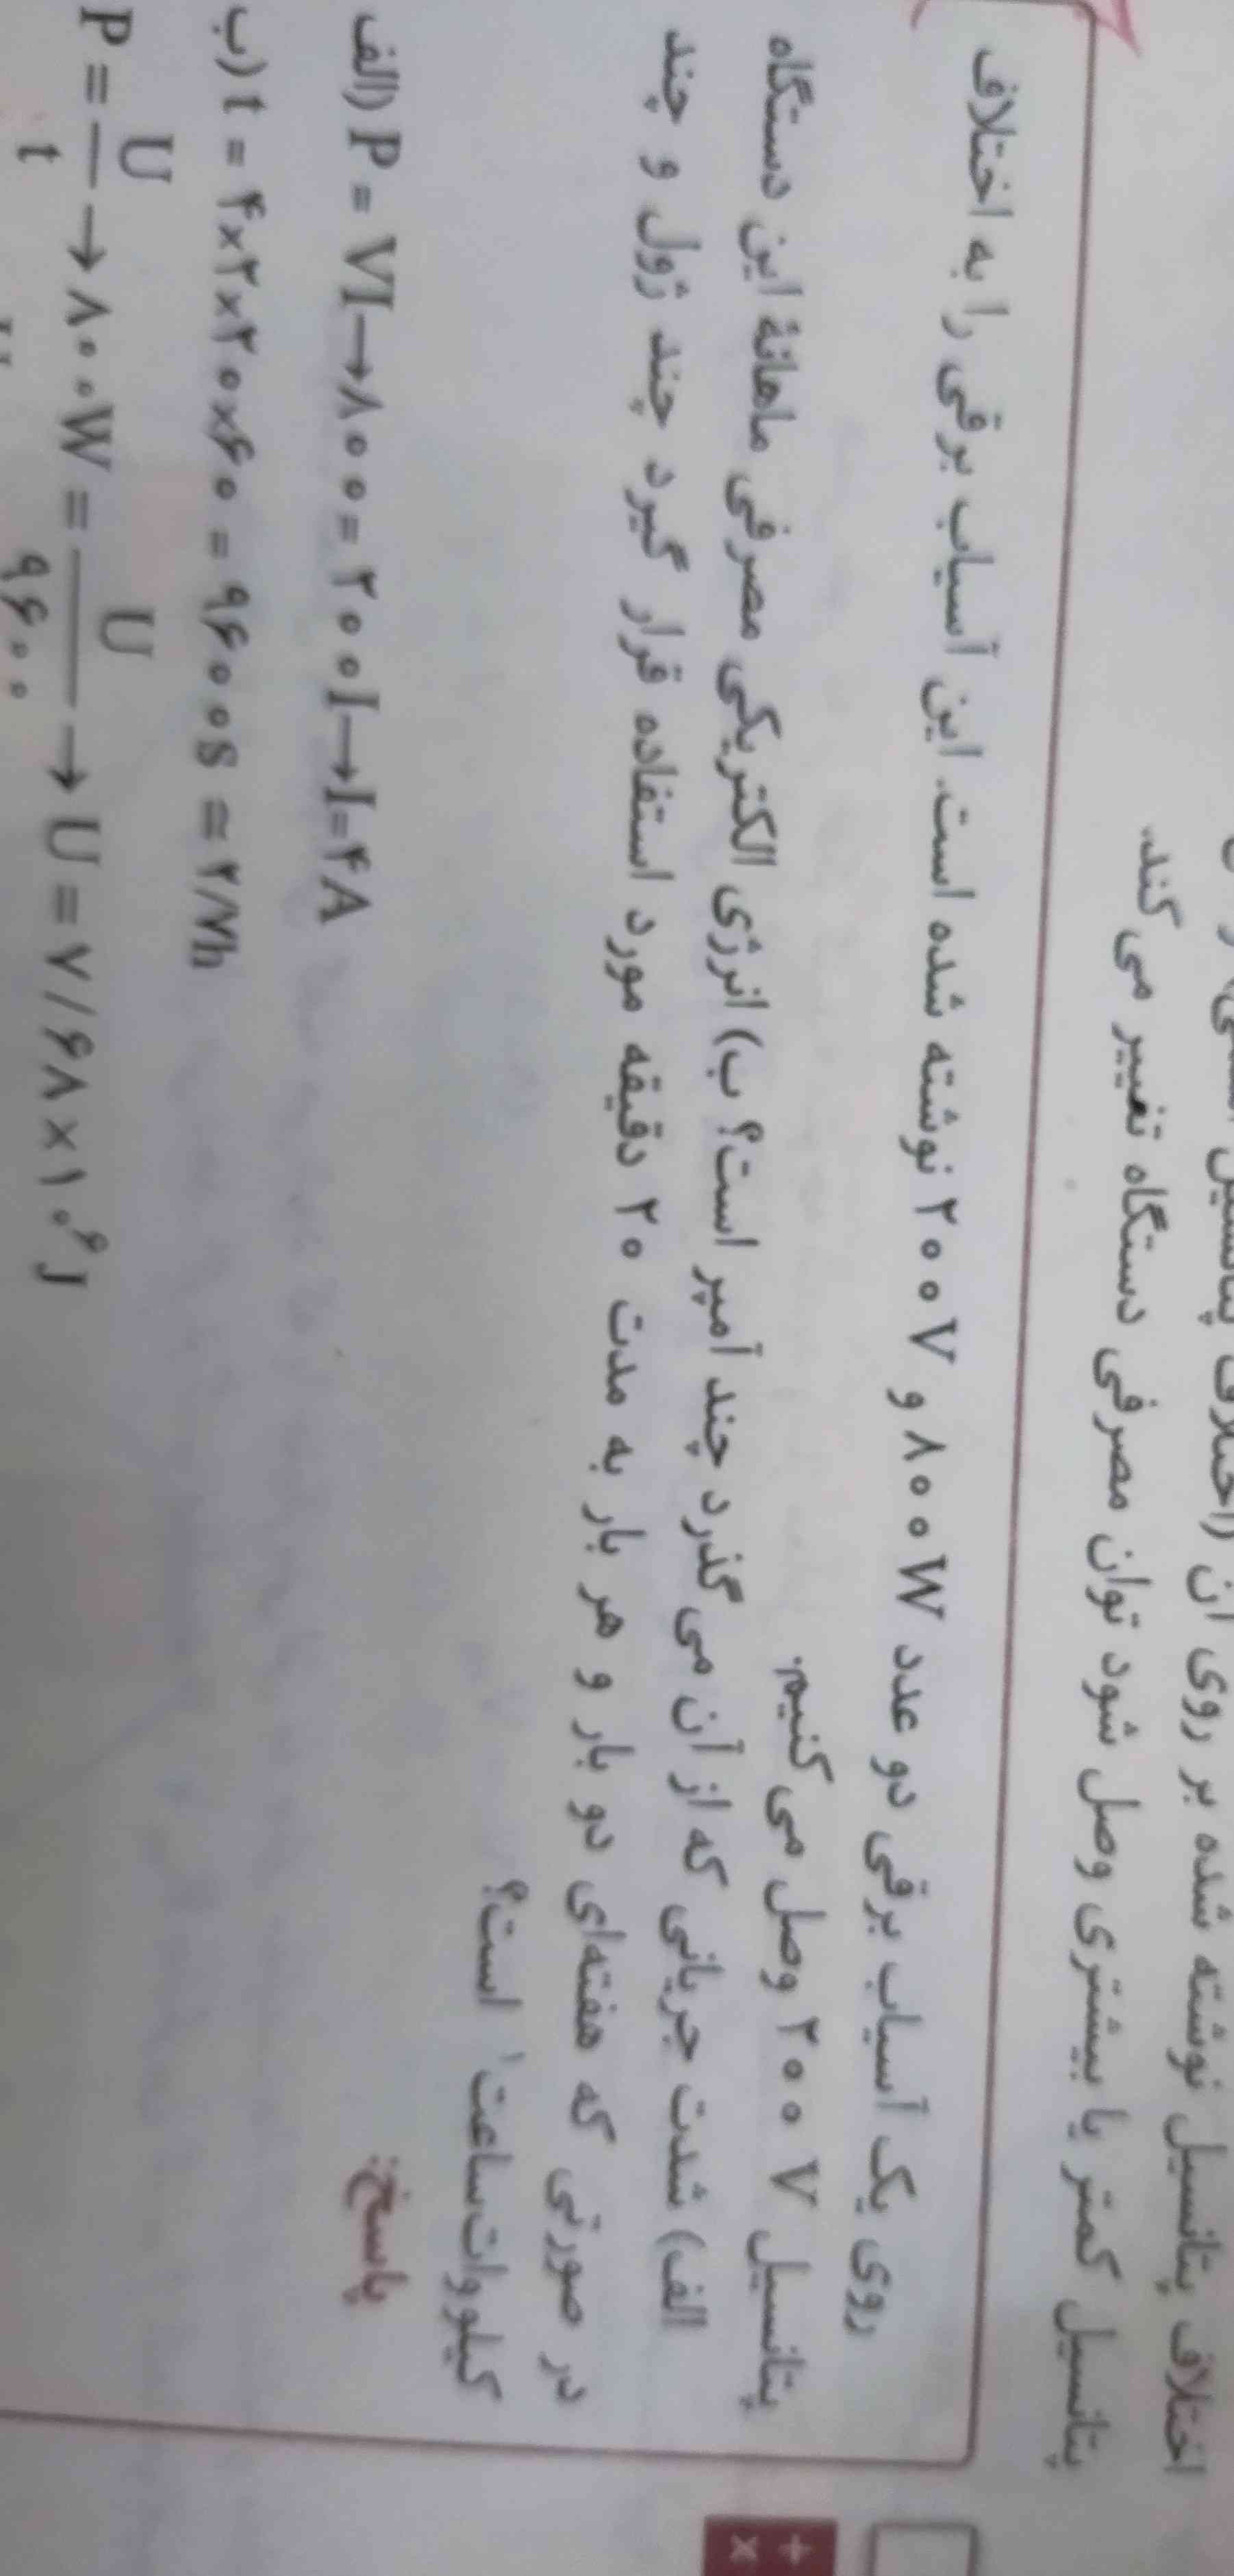 اختلاف پتانسیل نوشته شده بر روی آن (اختلاف پتانسیل
پتانسیل کمتر یا بیشتری وصل شود توان مصرفی دستگاه تغییر می‌کند.
روی یک آسیاب برقی دو عدد ۸۰۰W و ۲۰۰V نوشته شده است. این آسیاب برقی را به اختلاف
پتانسیل ۲۰۰V وصل می‌کنیم.
الف) شدت جریانی که از آن می‌گذرد چند آمپر است؟ ب) انرژی الکتریکی مصرفی ماهانهٔ این دستگاه
در صورتی که هفته‌ای دو بار و هر بار به مدت ۲۰ دقیقه مورد استفاده قرار گیرد چند ژول و چند
کیلووات‌ساعت۱ است؟
پاسخ:
الف) P = VI→۸۰۰=۲۰۰I→I=۴A
ب) t = ۴×۲×۲۰×۶۰ = ۹۶۰۰s ≃ ۲/۷h
P = U/t → ۸۰۰W = U/۹۶۰۰ → U = ۷/۶۸×۱۰^۶ J